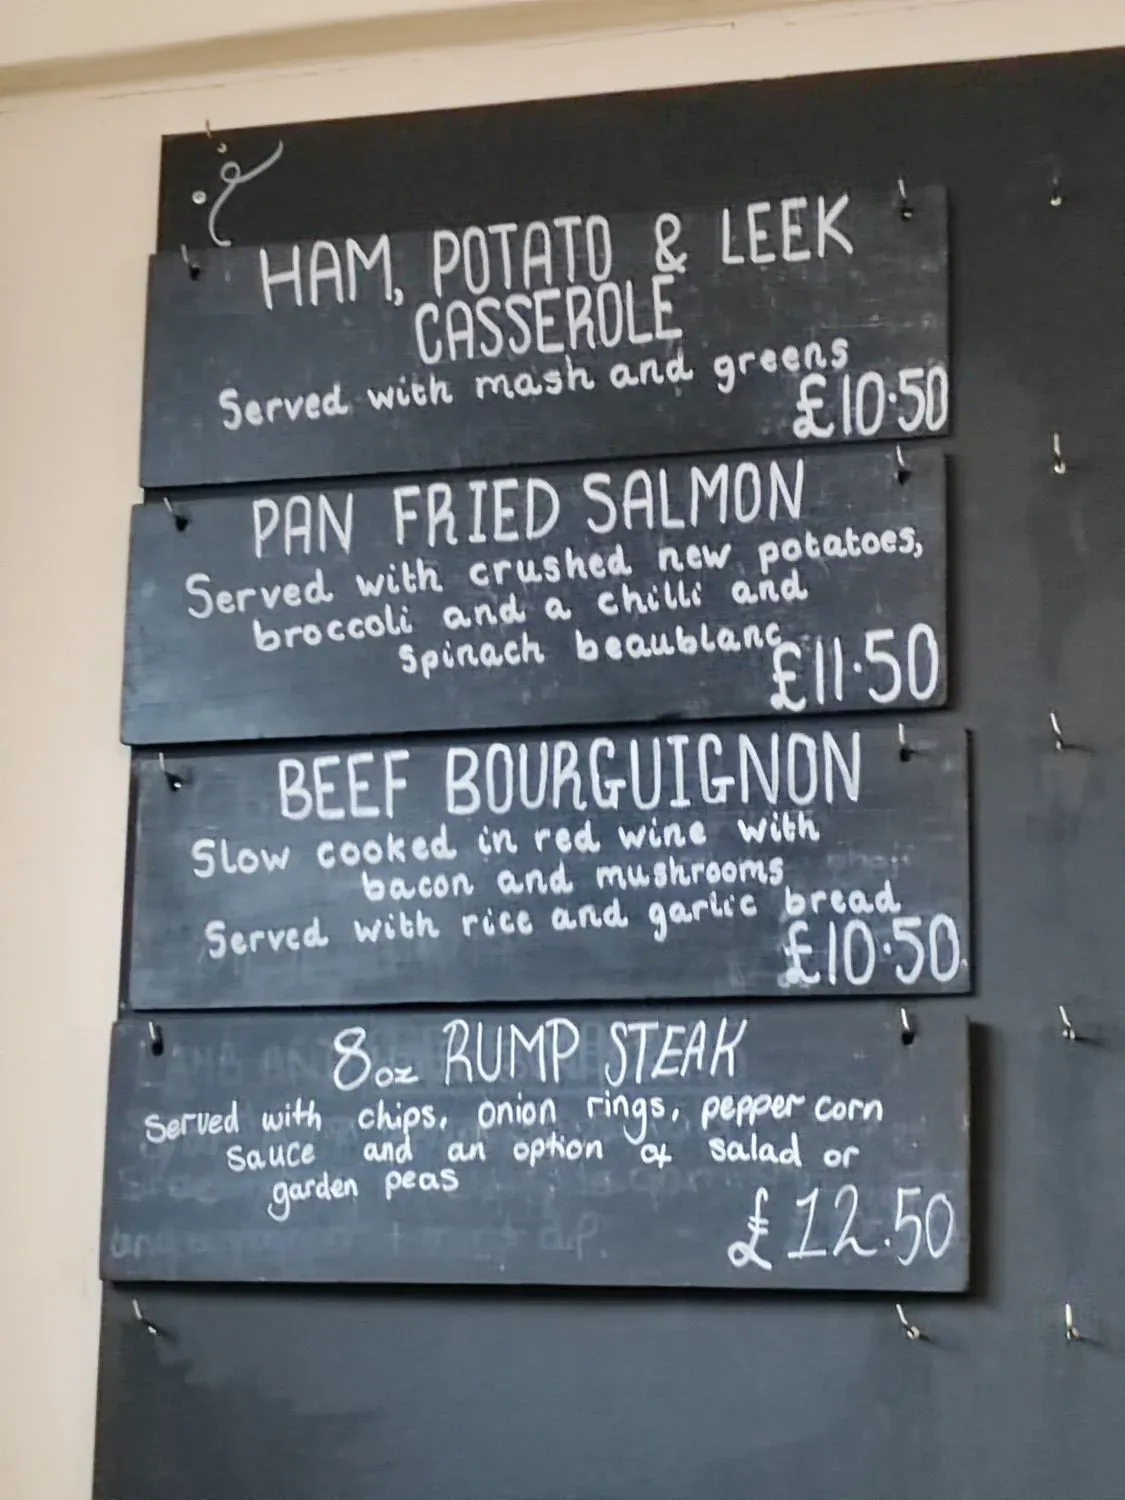 HAM, POTATO & LEEK
CASSEROLE
Served with mash and greens
£10.50
PAN FRIED SALMON
Served with crushed new potatoes,
broccoli and a chilli and
spinach beaublanc
£11.50
BEEF BOURGUIGNON
Slow cooked in red wine with
bacon and mushrooms
Served with rice and garlic bread
£10.50
8oz RUMP STEAK
Served with chips, onion rings, pepper corn
sauce and an option of salad or
garden peas
£12.50